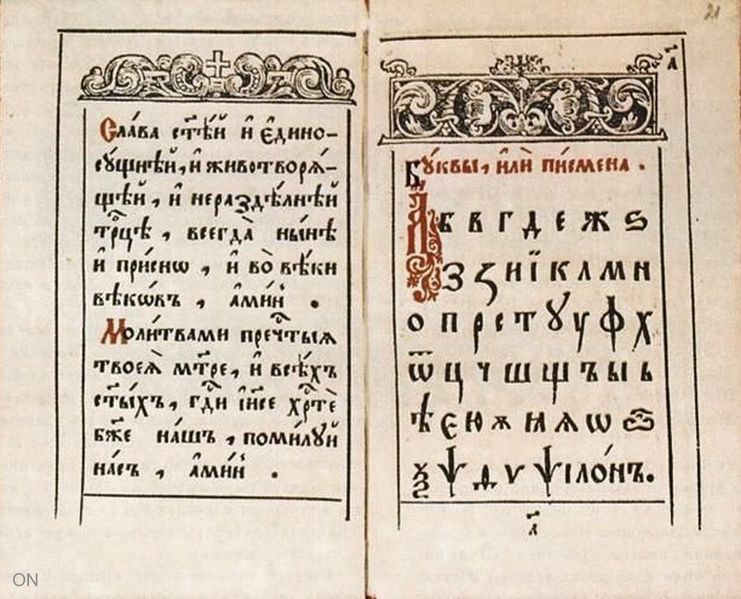 Сла́ва ст҃ѣ́й и҆ є҆дино-
сꙋ́щнѣй, и҆ животворѧ́-
щей, и҆ нераздѣ́лнѣй
тр҃цѣ, всегда̀ ны́нѣ
и҆ при́снѡ, и҆ во̀ вѣ́ки
вѣкѡ́въ, а҆ми́нь.
Моли́твами преч҃тыѧ
твоеѧ̀ мт҃ре, и҆ всѣ́хъ
ст҃ы́хъ, гд҇и і҆и҃се хр҇тѐ
бж҃е на́шъ, поми́лꙋй
на́съ, а҆ми́нь.
21
а҃
Бꙋ́квы, и҆лѝ пи́смена.
А Б В Г Д Е Ж Ѕ
З Ꙁ И Ї К Л М Н
О П Р С Т Ꙋ У Ф Х
Ѿ Ц Ч Ш Щ Ъ Ы Ь
Ѣ Є Ю Ѫ Ꙗ Ѧ Ѡ Ѽ
Ѯ Ѱ Ѳ Ѵ Ѱ І҆ЛО́НЪ.
а҃
ON